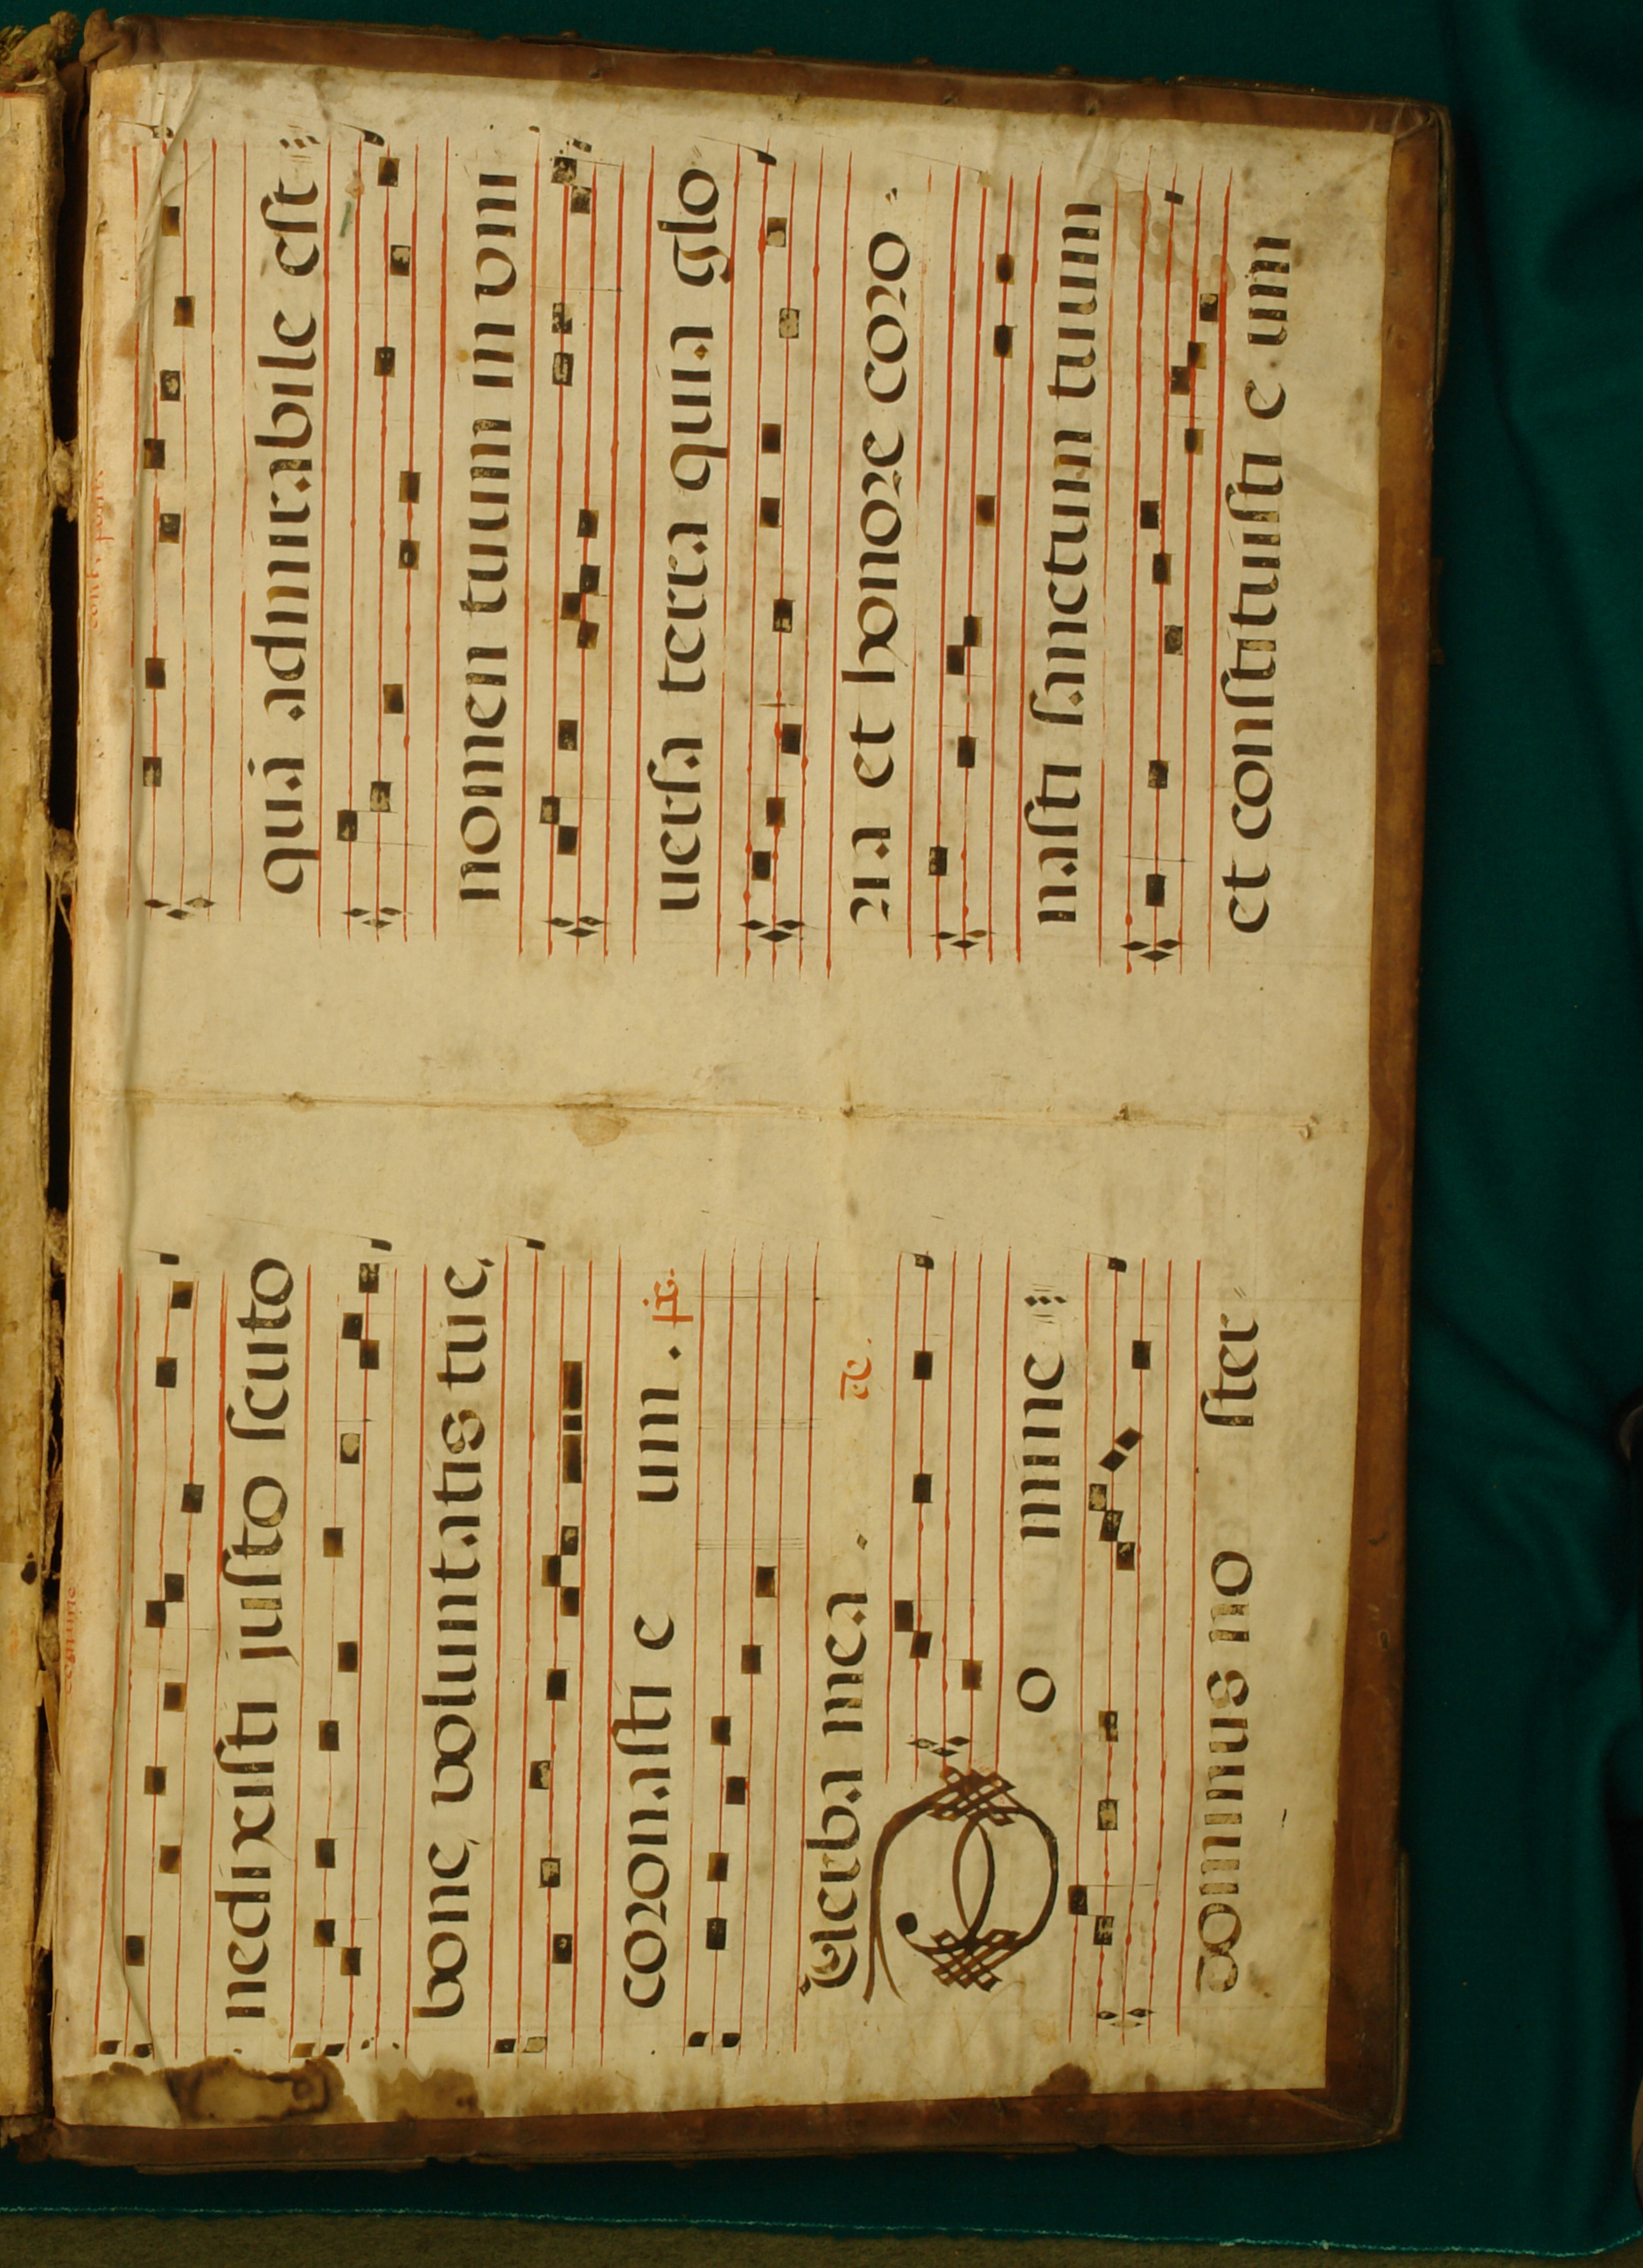 nedixisti justo scuto
bone voluntatis tue
coronasti e um . ps.
Verba mea .
D o mine
dominus no ster
quá admirabile est
nomen tuum in uni
uersa terra quia glo
ria et honore coro
nasti sanctum tuum
et constituisti e um